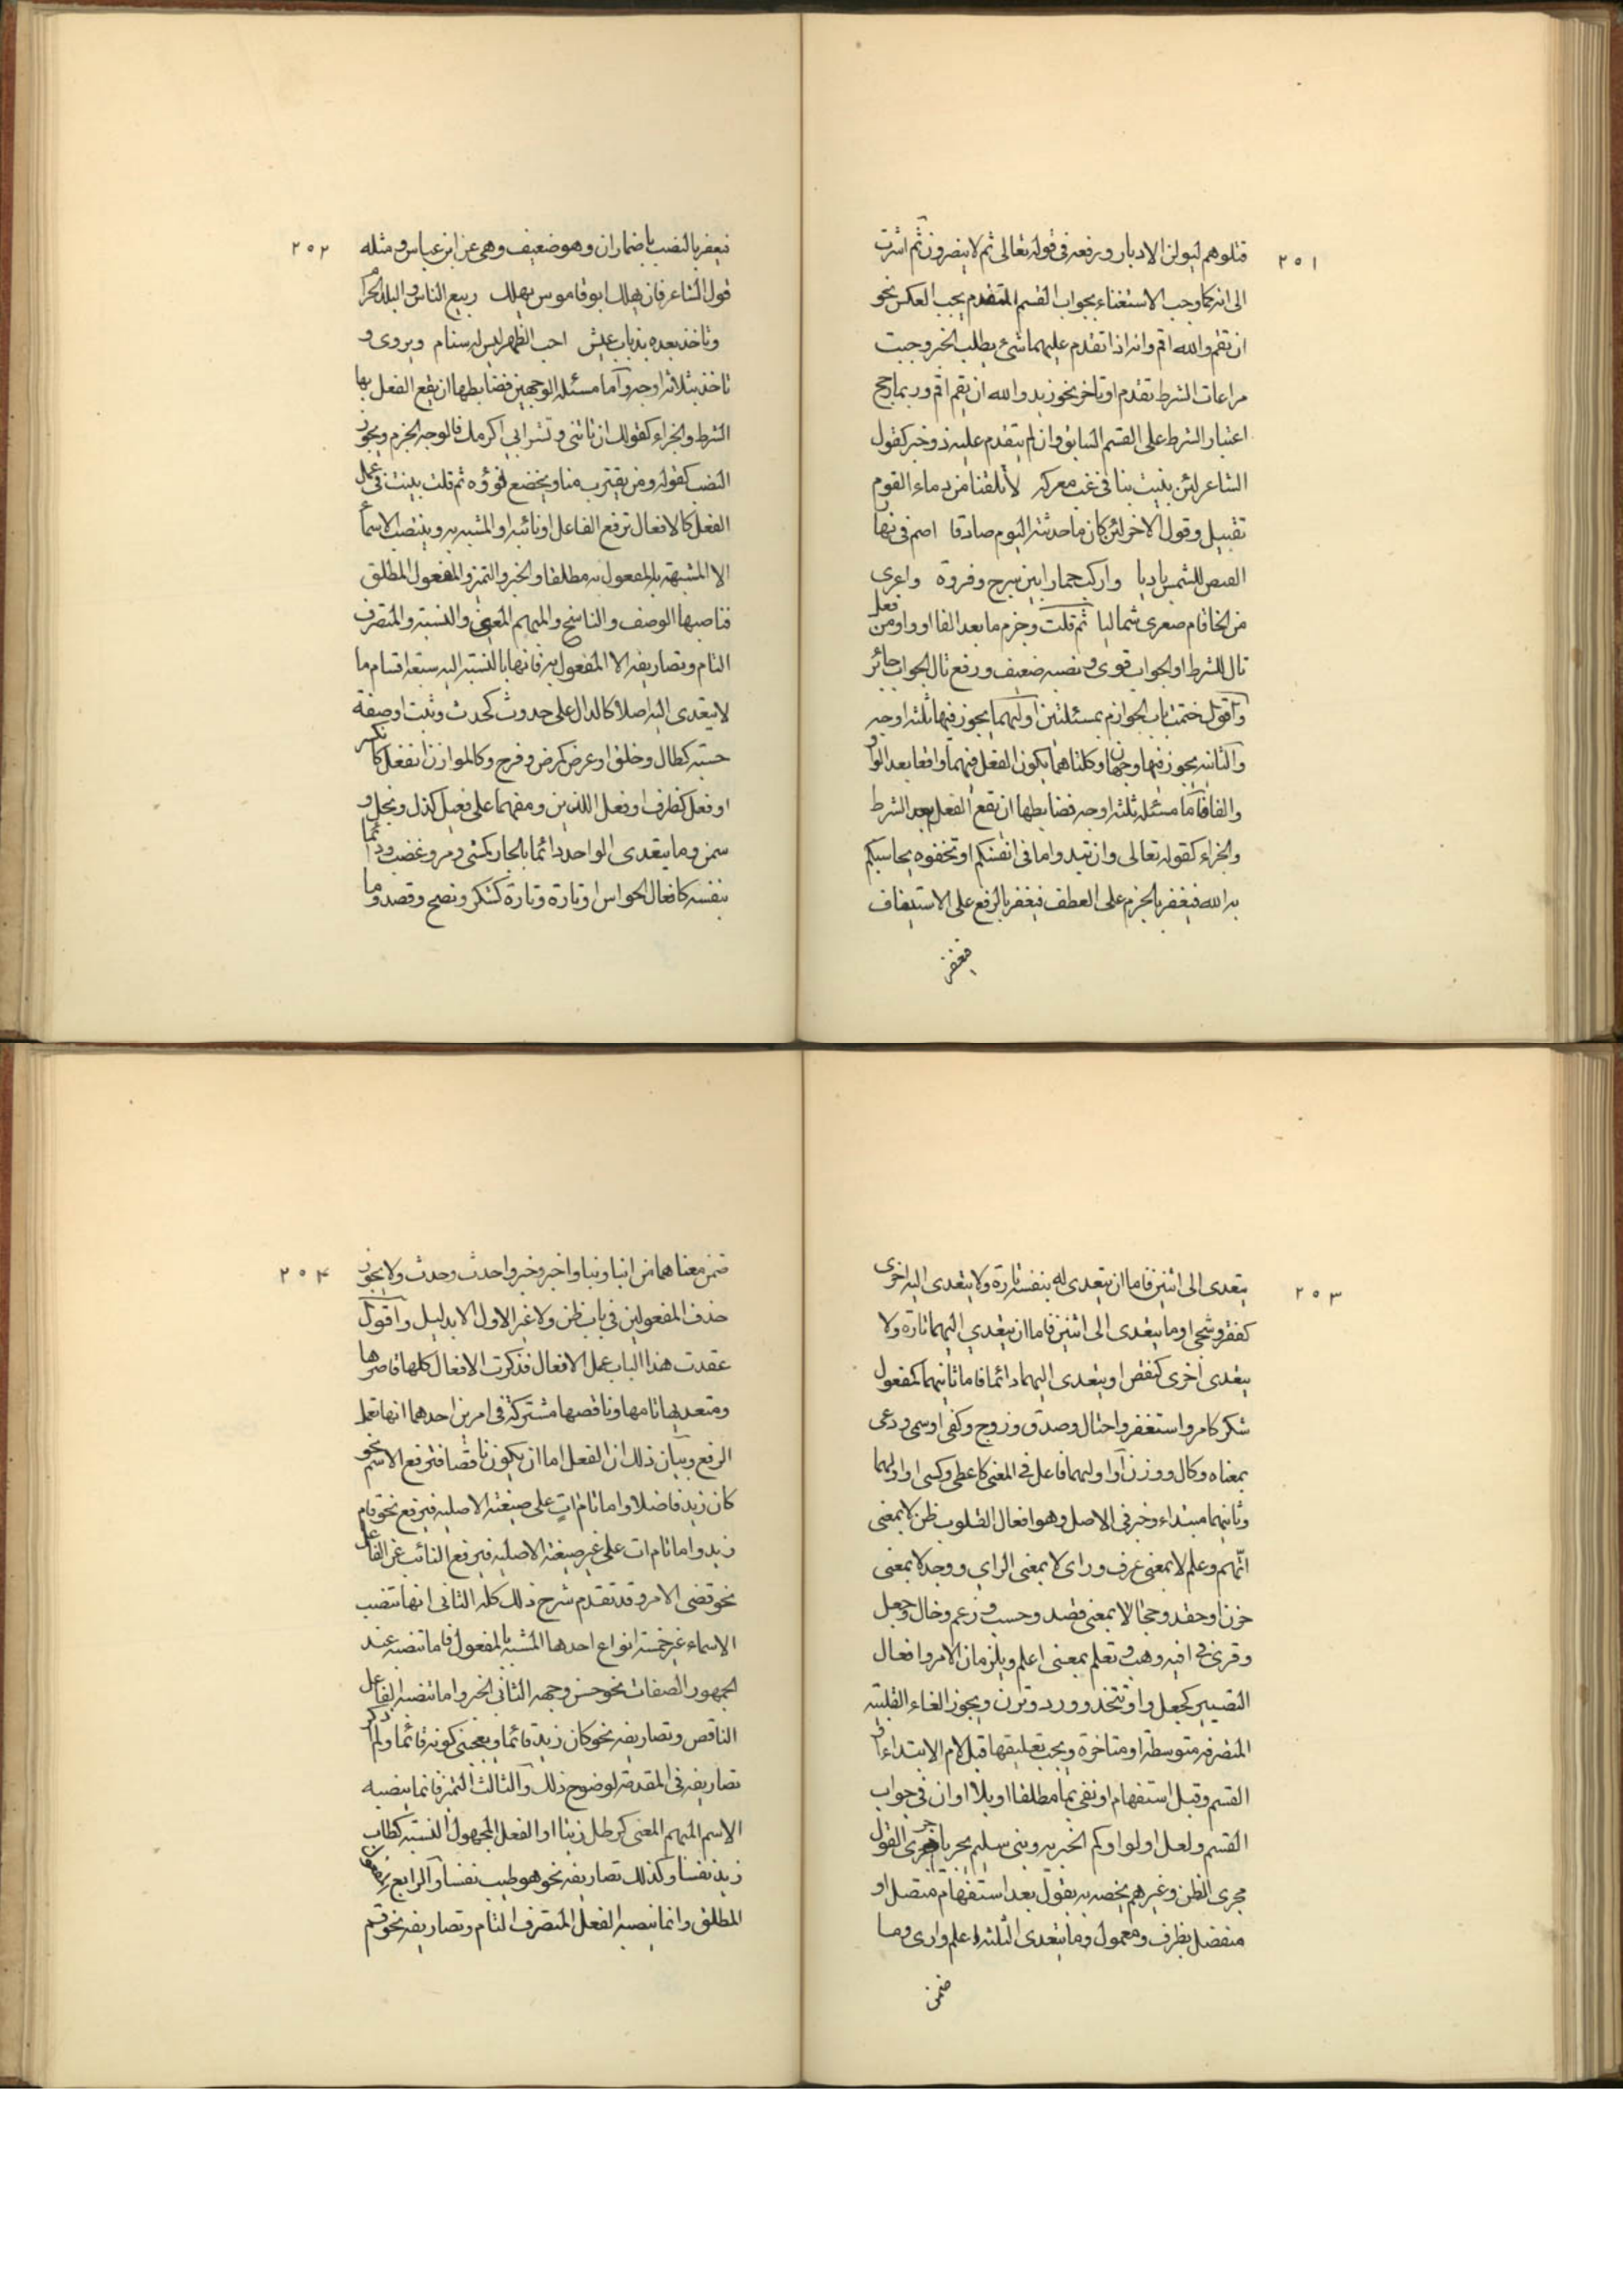 ٢٥١
قتلوهم ليولن الادبار وبرفعه فى قوله تعالى ثم لا ينصرون ثم اشرت
الى انه كما وجب الاستغناء بجواب القسم المتقدم يجب العكس نحو
ان تقم والله اقم وانه اذا تقدم عليهما شئ يطلب الخبر وجبت
مراعات الشرط تقدم او تاخر نحو زيد والله ان يقم اقم وربما رجح
اعتبار الشرط على القسم السابق وان لم يتقدم عليه ذو خبر كقول
الشاعر لئن بليت بنا فى غب معركه لا تلفنا من دماء القوم
تقبيل وقول الاخر لئن كان ما حدثته اليوم صادقا اصم فى نهار
القيص للشمس باديا واركب حمارا بين سرج وفروة واعرى
من الخاتام صغرى شماليا ثم قلت وجزم ما بعد الفا او واو من فعل
تال للشرط او الجواب قوى ونصبه ضعيف ورفع تال الجواب جائز
واقول ختمت باب الجوازم بمسئلتين اولهما يجوز فيها ثلثه اوجه
والثانيه يجوز فيها وجهان وكلتاهما يكون الفعل فيهما واقعا بعد الواو
والفا فاما مسئله ثلثه اوجه فضابطها ان يقع الفعل بعد الشرط
والجزاء كقوله تعالى وان تبدوا ما فى انفسكم او تخفوه يحاسبكم
به الله فيغفر بالجزم على العطف فيغفر بالرفع على الاستيناف
فيغفر
٢٥٢
فيغفر بالنصب باضمار ان وهو ضعيف وهى عن ابن عباس ومثله
قول الشاعر فان يهلك ابو قاموس يهلك ربيع الناس والبلد الحرام
وناخذ بعده بذناب عيش احب الظهر ليس له سنام ويروى و
ناخذ بثلاثه اوجه واما مسئله الوجهين فضابطها ان يقع الفعل بها
الشرط والجزاء كقولك ان تاتنى وتشرابى اكرمك فالوجه الجزم ويجوز
النصب كقوله ومن يقترب منا ويخضع نؤوه ثم قلت بينت فى عمل
الفعل كالافعال ترفع الفاعل او نائبه او المشبه به وينتصب الاسماء
الا المشبهة بالمفعول به مطلقا والخبر والتميز والمفعول المطلق
فناصبها الوصف والناسخ والمبهم المعنى والنسبته والمتصرف
التام وتصاريفه الا المفعول به فانها بالنسبته اليه سبتعه اقسام ما
لا يتعدى اليه اصلا كالدال على حدوث كحدث ونبت او صفة
حسته كطال وخلق او عرض كمرض وفرح وكالموازن انفعل كانكسر
او فعل كظرف او فعل اللذين وصفهما على فعيل كذل ونجل و
سمن وما يتعدى الواحد دائما بالجار كمشى ومر وغضب ودائما
بنفسه كافعال الحواس او تارة وتارة كشكر ونصح وقصد وما
٢٥٣
يتعدى الى اثنين فاما ان يتعدى له بنفسه تارة ولا يتعدى اليه اخرى
كفقر وشجى او ما يتعدى الى اثنين فاما ان يتعدى اليهما تارة ولا
يتعدى اخرى كنقص او يتعدى اليهما دائما فاما ثانيهما كمفعول
شكر كامر واستغفر واحتال وصدق وزوج وكفى او سمى ودعى
بمعناه وكال ووزن او اولهما فاعل فى المعنى كاعطى وكسى او اولهما
وثانيهما مبتداء وخبر فى الاصل وهو افعال القلوب ظن لا بمعنى
اتهم وعلم لا بمعنى عرف وراى لا بمعنى الراى ووجد لا بمعنى
حزن او حقد وحجا لا بمعنى قصد وحسب وزعم وخال وجعل
وقرى فى افيه وهب وتعلم بمعنى اعلم ويلزمان الامر وافعال
التصيير كجعل واو تتخذ وورد وترن ويجوز الغاء القلبيه
المتصرفه متوسطة او متاخرة ويجب تعليقها قبل لام الابتداء او
القسم وقبل استفهام او نفى بما مطلقا او بلا او ان فى جواب
القسم ولعل او لو او كم الخبريه وبنى سليم يجرى القول
مجرى الظن وغيرهم يخصه به بقول بعد استفهام متصل او
منفصل بظرف ومعمول وما يتعدى الثلثه اعلم وارى وما
ضمن
٢٥٤
ضمن معناهما من انبا ونبا واخبر وخبر واحدث وحدث ولا يجوز
حذف المفعولين فى باب ظن ولا غير الاول الا بدليل واقول
عقدت هذا الباب عمل الافعال فذكرت الافعال كلها قاصرها
ومتعديها تامها وناقصها مشتركة فى امرين احدهما انها تعمل
الرفع وبيان ذلك ان الفعل اما ان يكون ناقصا فترفع الاسم نحو
كان زيد فاضلا واما تام ات على صيغته الاصليه فيرفع نحو قام
زيد واما تام ات على غير صيغته الاصليه فيرفع النائب عن الفاعل
نحو قضى الامر وقد تقدم شرح ذلك كله الثانى انها تنصب
الاسماء غير خمسة انواع احدها المشبه بالمفعول فاما تنصبه عند
الجمهور الصفات نحو حسن وجهه الثانى الخبر واما تنصبه الفاعل
الناقص وتصاريفه نحو كان زيد قائما ويعجبنى كونه قائما ولم اذكر
تصاريفه فى المقدمة لوضوح ذلك والثالث التميز فانما ينصبه
الاسم المبهم المعنى كرطل زيتا او الفعل المجهول النسبته كطاب
زيد نفسا وكذلك تصاريفه نحو هو طيب نفسا والرابع المفعول
المطلق وانما ينصبه الفعل المتصرف التام وتصاريفه نحو قم